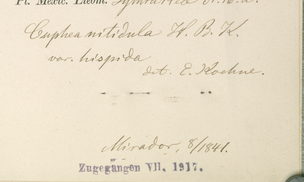 Pl. Mexic. Liebm.
Cuphea nitidula H. B. K.
var. hispida
det. E. Koehne.
Mirador, 8/1841.
Zugegangen VII. 1917.